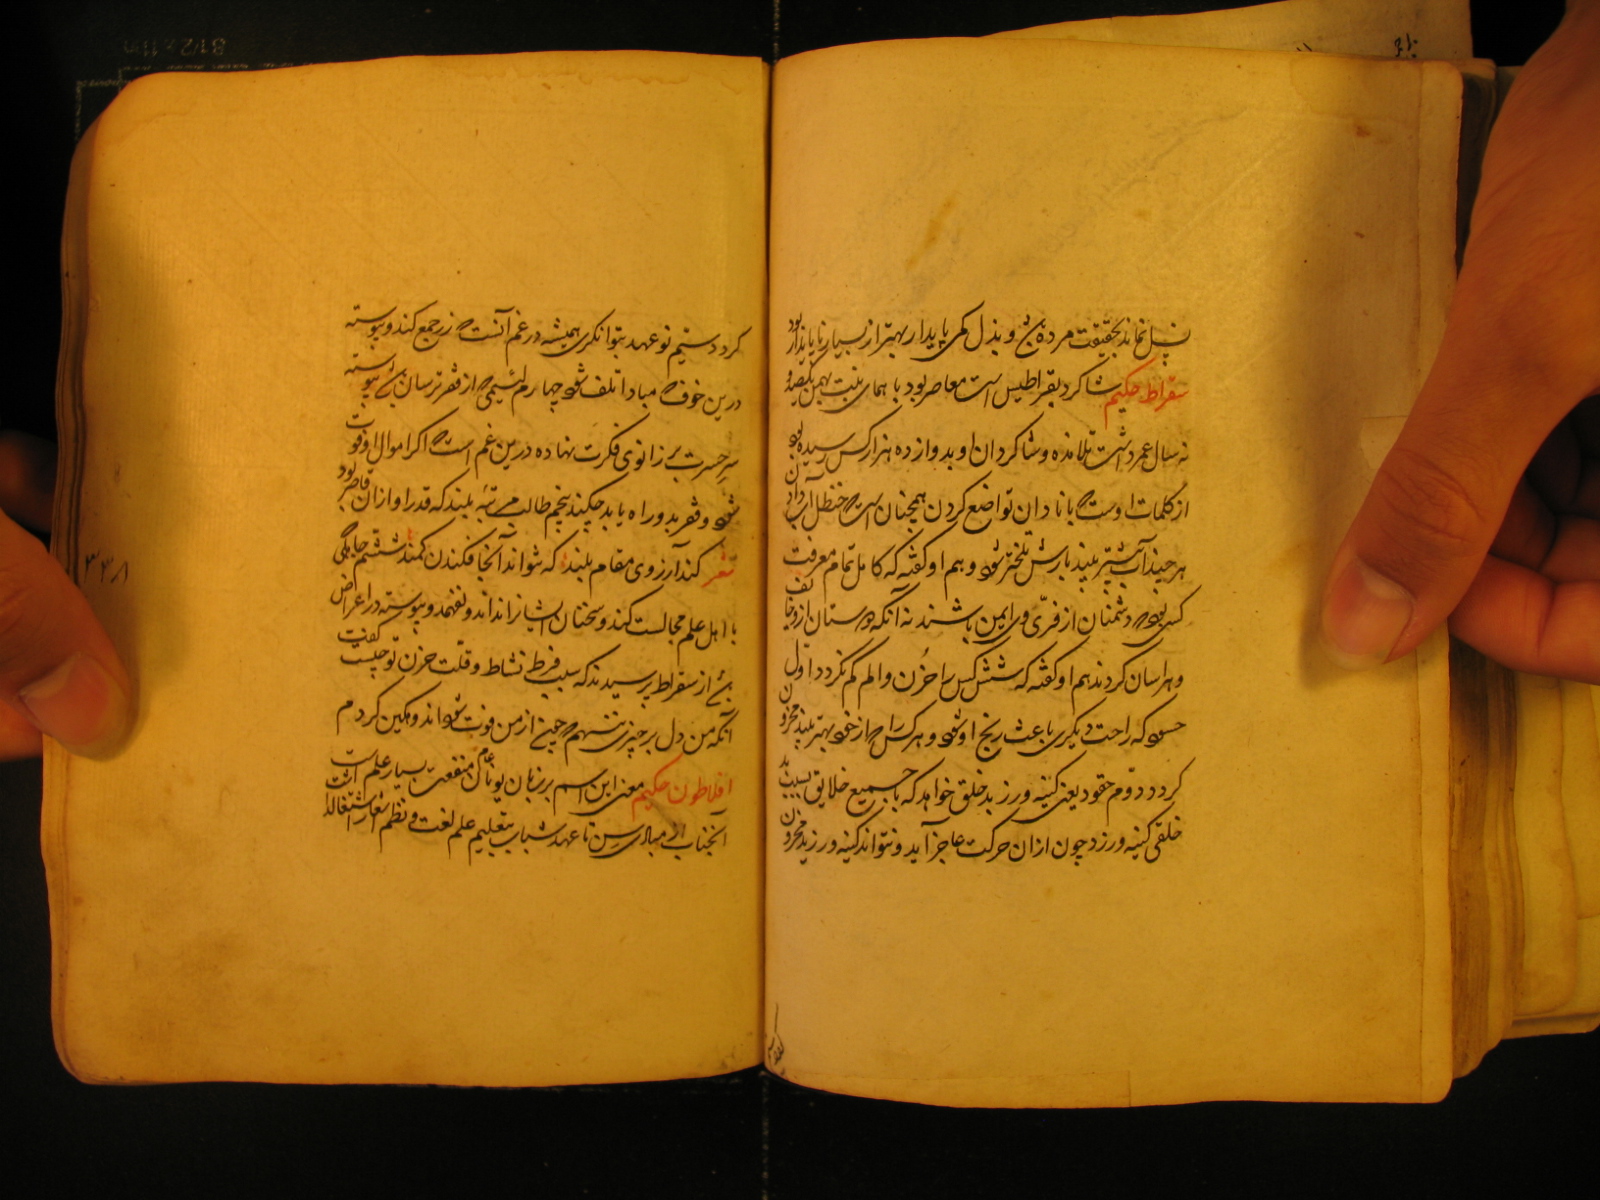 نسل نماند بحقیقت مرده بود و بذل کمی پایدار بهتر از بسیار ناپایدار بود
سقراط حکیم شاکرد بقراطیس است معاصر بود با همای بنت بهمن یکصد و
نه سال عمر داشت تلامذه و شاکردان او بدوازده هزار کس رسیده بود
از کلمات اوست که با نادان تواضع کردن همچنان است که حنظل آب دادن
هر چند آب بیشتر بیند بارش تلختر شود و هم او کفته که کامل تمام معرفت
کسی بود که دشمنان از وی ایمن باشند نه آنکه دوستان از وی خایف
و هراسان کردند هم او کفته که شش کس را حزن و الم کم نکردد اول
حسود که راحت دیکری باعث رنج او شود و هر کس را که از خود بهتر بیند محزون
کردد دوم حقود یعنی کینه ورز بد خلق خواهد که با جمیع خلایق بسبب بد
خلقی کینه ورزد چون از آن حرکت عاجز آید و نتواند کینه ورزید محزون
کردد سیم نو عهد بتوانکری همیشه در غم آنست که زر جمع کند و پیوسته
درین خوف که مبادا تلف شود چهارم لئیمی که از فقر ترسان بود پیوسته
سر حسرت بر زانوی فکرت نهاده درین غم است که اکر اموال او فوت
شود و فقر بدو راه یابد چکند پنجم طالب مرتبه بلند که قدر او از آن قاصر بود
شعر کند آرزوی مقام بلند که نتواند آنجا فکندن کمند ششم جاهلی که
با اهل علم مجالست کند و سخنان ایشانرا نداند و نفهمد و پیوسته در اعراض
بود از سقراط پرسیدند که سبب فرط نشاط و قلت حزن تو چیست کفت
آنکه من دل بر چیزی ننهم که چون از من فوت شود اندوهکین کردم
افلاطون حکیم معنی این اسم بر زبان یونان عام منفعت بسیار علم است
آنجناب از مبادی سن تا عهد شباب بتعلیم علم لغت و نظم اشعار اشتغال داشت